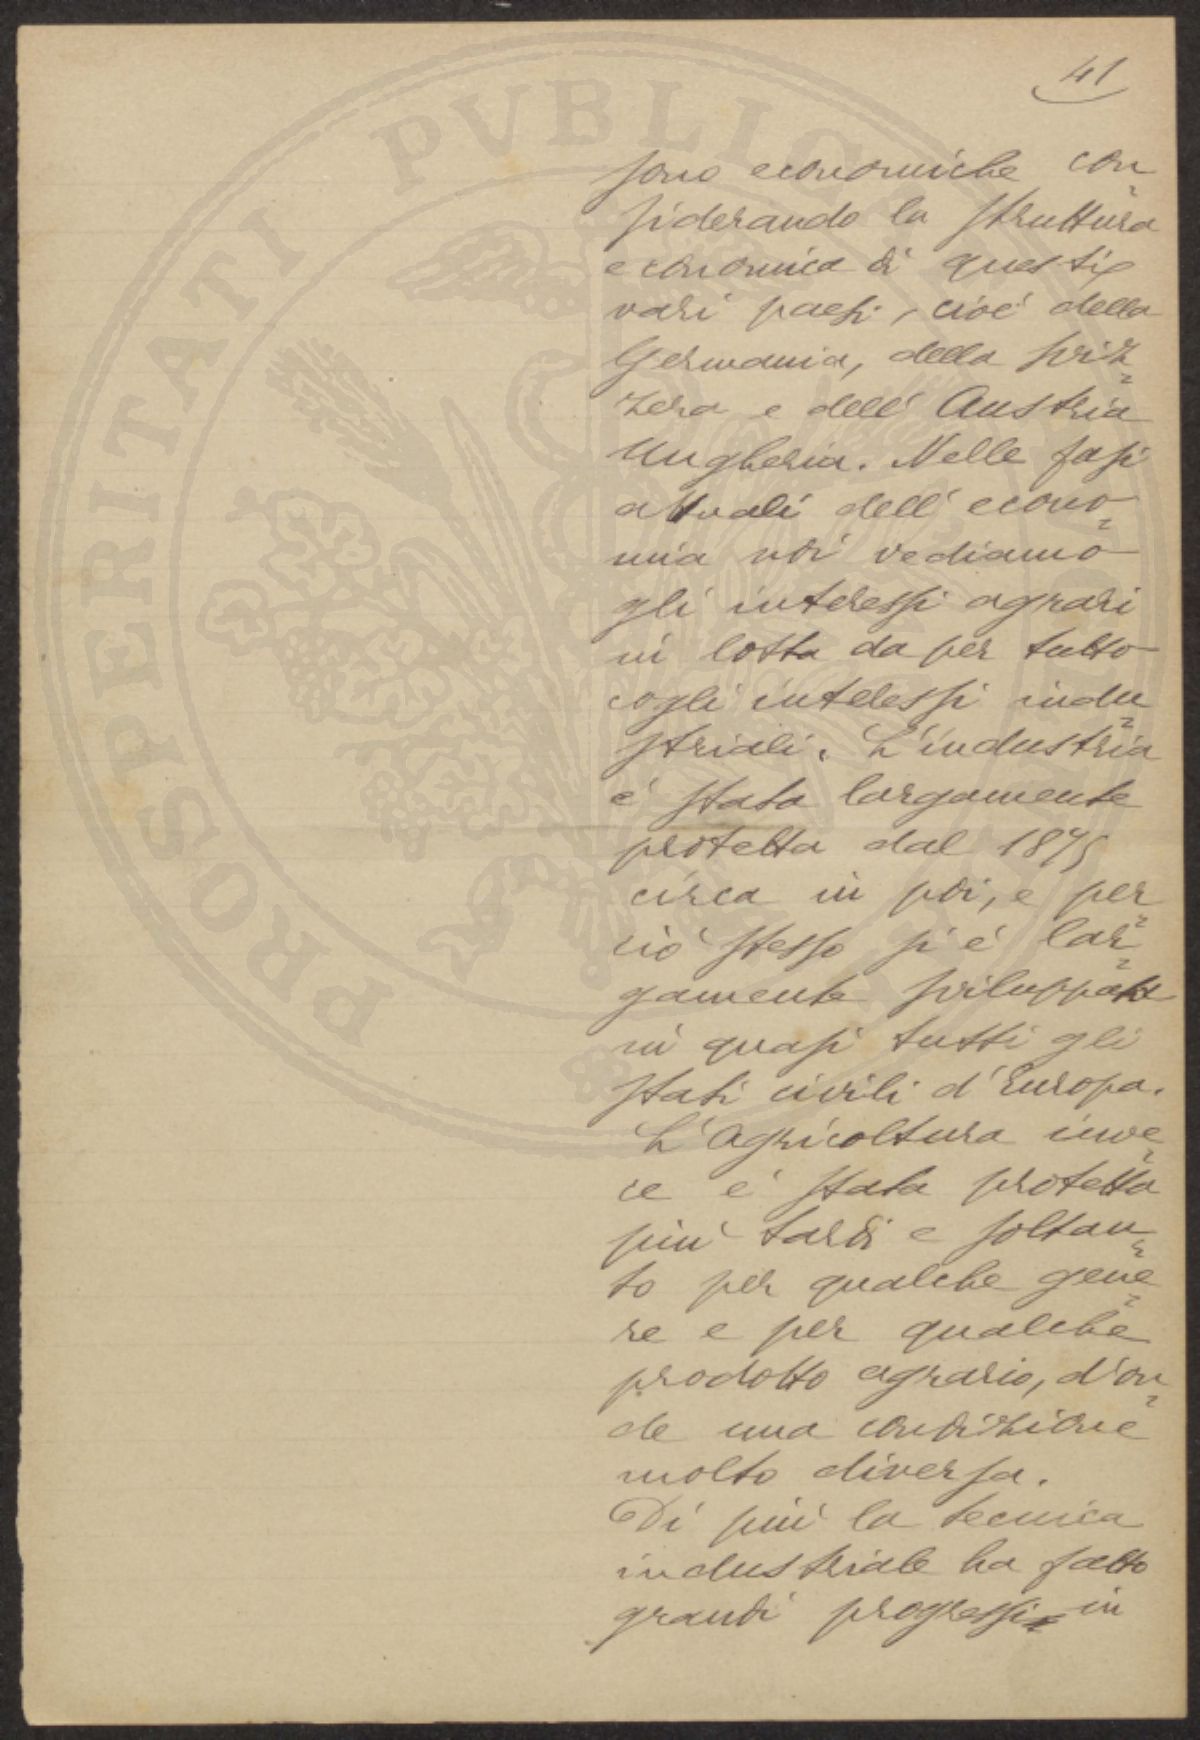 41
sono economiche con
siderando la struttura
economica di questi
vari paesi, cioè della
Germania, della sviz
zera e dell' Austria
Ungheria. Nelle fasi
attuali dell' econo
mia noi vediamo
gli interessi agrari
in lotta da per tutto
cogli interessi indu
striali. L'industria
è stata largamente
protetta dal 1875
circa in poi, e per
ciò stesso si è lar
gamente sviluppata
in quasi tutti gli
stati civili d'Europa.
L'Agricoltura inve
ce è stata protetta
più tardi e soltan
to per qualche gene
re e per qualche
prodotto agrario, d'on
de una condizione
molto diversa.
Di più la tecnica
industriale ha fatto
grandi progressi in
PROSPERITATI PVBLIC